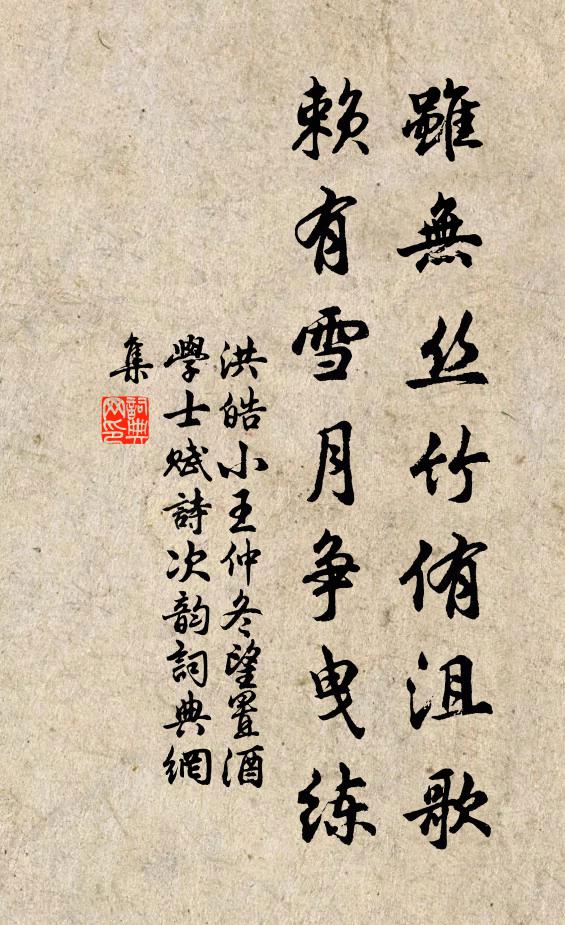 雖無丝竹侑沮歌
賴有雪月争曳练
洪皓小王仲冬望置酒
學士赋詩次韵詞典網
集
詞典网印